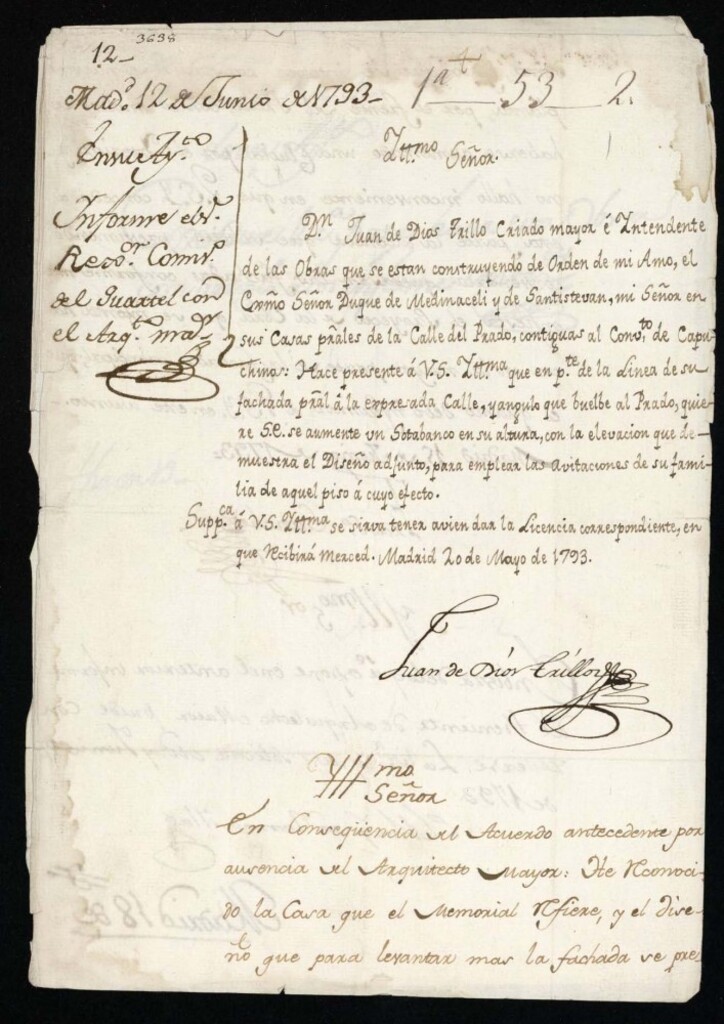 12-
3638
Mad.º 12 de Junio de 1793-
1ª 4 53 2.
En su Ay.to
Informe el S.r
Rexo.or Comis.º
del Quartel con
el Arq.to mr.
Ill.mo Señor.
D.n Juan de Dios Trillo Criado mayor é Yntendente
de las Obras que se estan construyendo de Orden de mi Amo, el
Exmo Señor Duque de Medinaceli y de Santistevan, mi Señor en
sus Casas prãles de la Calle del Prado, contiguas al Conv.to de Capu-
chinos: Hace presente á V.S. Yll.ma que en p.te de la Linea de su
fachada prãl á la expresada Calle, y angulo que buelbe al Prado, quie-
re S.E. se aumente vn Sotabanco en su altura, con la elevacion que de-
muestra el Diseño adjunto, para emplear las avitaciones de su fami-
lia de aquel piso á cuyo efecto.
Supp.ca á V.S. Yll.ma se sirva tener avien dar la Licencia correspondiente, en
que Recibirá merced. Madrid 20 de Mayo de 1793.
Juan de Dios Trillo
Yll.mo Señor
En Conseqüencia del Acuerdo antecedente por
ausencia del Arquitecto Mayor: He Reconoci-
do la Casa que el Memorial Refiere, y el dise-
ño que para levantar mas la fachada se pre-